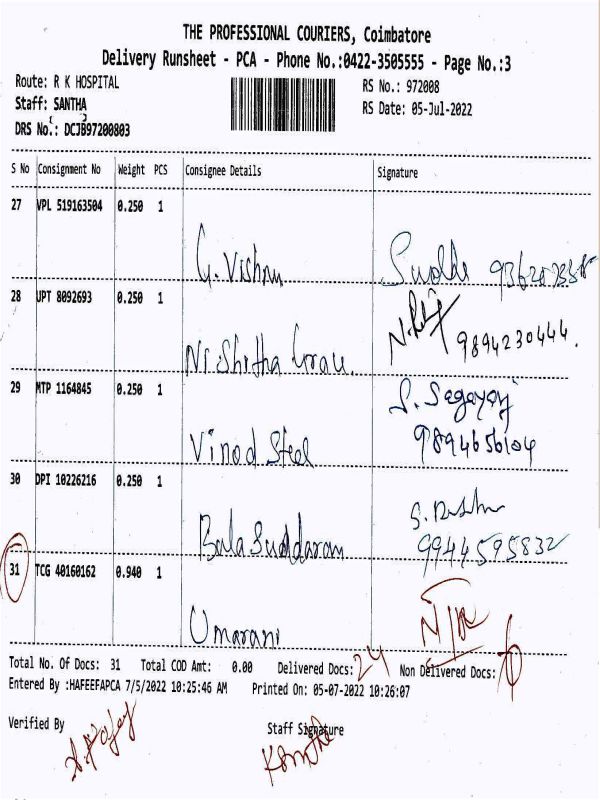 THE PROFESSIONAL COURIERS, Coimbatore
Delivery Runsheet - PCA - Phone No.:0422-3505555 - Page No.:3
Route: R K HOSPITAL RS No.: 972008
Staff: SANTHA RS Date: 05-Jul-2022
DRS No.: DCJB97200803
S No Consignment No Weight PCS Consignee Details Signature
27 VPL 519163504 0.250 1
G. Vishnu
28 UPT 8092693 0.250 1
9894230444.
29 MTP 1164845 0.250 1
S. Sagayaraj
Vinod Steel 9894656104
30 DPI 10226216 0.250 1
Bala Suddaram 9944595832
31 TCG 40160162 0.940 1
Umarani
Total No. Of Docs: 31 Total COD Amt: 0.00 Delivered Docs: 24 Non Delivered Docs:
Entered By :HAFEEFAPCA 7/5/2022 10:25:46 AM Printed On: 05-07-2022 10:26:07
Verified By Staff Signature